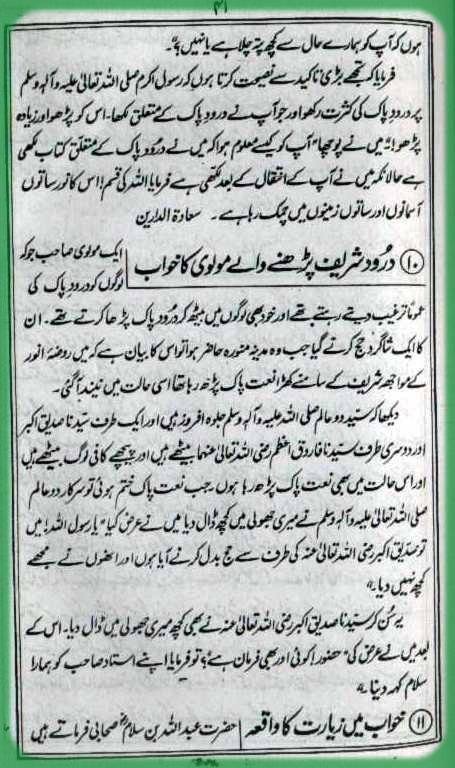 ۴۱
ہوں کہ آپ کو ہمارے حال سے کچھ پتہ چلا ہے یا نہیں؟"
فرمایا کہ تجھے بڑی تاکید سے نصیحت کرتا ہوں کہ رسول اکرم صلی اللہ تعالیٰ علیہ وآلہٖ وسلم
پر درود پاک کی کثرت رکھو اور جو آپ نے درود پاک کے متعلق لکھا۔ اس کو پڑھو اور زیادہ
پڑھو! میں نے پوچھا "آپ کو کیسے معلوم ہوا کہ میں نے درود پاک کے متعلق کتاب لکھی
ہے حالانکہ میں نے آپ کے انتقال کے بعد لکھی ہے فرمایا اللہ کی قسم! اس کا نور ساتوں
آسمانوں اور ساتوں زمینوں میں چمک رہا ہے۔ سعادة الدارین
۱۰ درود شریف پڑھنے والے مولوی کا خواب
ایک مولوی صاحب جو کہ
لوگوں کو درود پاک کی
عموماً ترغیب دیتے رہتے تھے اور خود بھی لوگوں میں بیٹھ کر درود پاک پڑھا کرتے تھے۔ ان
کا ایک شاگرد حج کرنے گیا جب وہ مدینہ منورہ حاضر ہوا تو اس کا بیان ہے کہ میں روضہ انور
کے مواجھہ شریف کے سامنے کھڑا نعت پاک پڑھ رہا تھا اسی حالت میں نیند آگئی۔
دیکھا کہ سید دو عالم صلی اللہ علیہ وآلہٖ وسلم جلوہ افروز ہیں اور ایک طرف سیدنا صدیق اکبر
اور دوسری طرف سیدنا فاروق اعظم رضی اللہ تعالیٰ عنہما بیٹھے ہیں اور پیچھے کافی لوگ بیٹھے ہیں
اور اس حالت میں بھی نعت پاک پڑھ رہا ہوں۔ جب نعت پاک ختم ہوئی تو سرکار دو عالم
صلی اللہ تعالیٰ علیہ وآلہٖ وسلم نے میری جھولی میں کچھ ڈال دیا میں نے عرض کیا "یا رسول اللہ! میں
تو صدیق اکبر رضی اللہ تعالیٰ عنہ کی طرف سے حج بدل کرنے آیا ہوں اور انھوں نے مجھے
کچھ نہیں دیا۔"
یہ سُن کر سیدنا صدیق اکبر رضی اللہ تعالیٰ عنہ نے بھی کچھ میری جھولی میں ڈال دیا۔ اس کے
بعد میں نے عرض کی "حضور! کوئی اور بھی فرمان ہے؟ تو فرمایا اپنے استاد صاحب کو ہمارا
سلام کہہ دینا۔"
۱۱ خواب میں زیارت کا واقعہ
حضرت عبداللہ بن سلام صحابی فرماتے ہیں